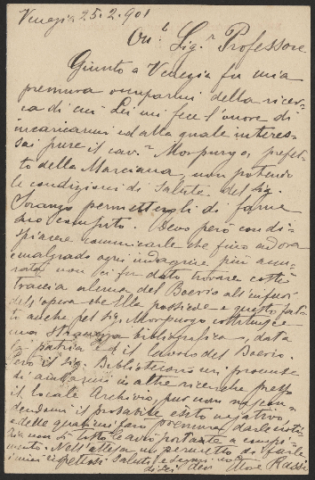 Venezia 25.2.901
On.e Sig.r Professore
Giunto a Venezia fu mia
premura occuparmi della ricer
ca di cui Lei mi fece l'onore di
incaricarmi ed alla quale interes
sai pure il cav.r Morpurgo, prefet
to della Marciana, non potendo
le condizioni di salute del Sig.
Soranzo permettergli di farne
suo compito. Devo però con di
spiacere comunicarle che fino ad ora
malgrado ogni indagine più accu
rata non ci fu dato trovare certa
traccia alcuna del Boerio all'infuori
dell'opera che Ella possiede e questo fat
to anche pel Sig. Morpurgo costituisce
una stranezza bibliografica, data
la patria e il lavoro del Boerio.
Però il Sig. Bibliotecario mi promise
di aiutarmi in altre ricerche presso
il locale Archivio, pur non nascon
dendomi il probabile esito negativo
e delle quali mi farò premura darle noti
zia non di tutto le avrò portate a compi
mento. Nell'attesa mi permetto di farle
i miei rispettosi saluti e segnarmi
di Lei dev.